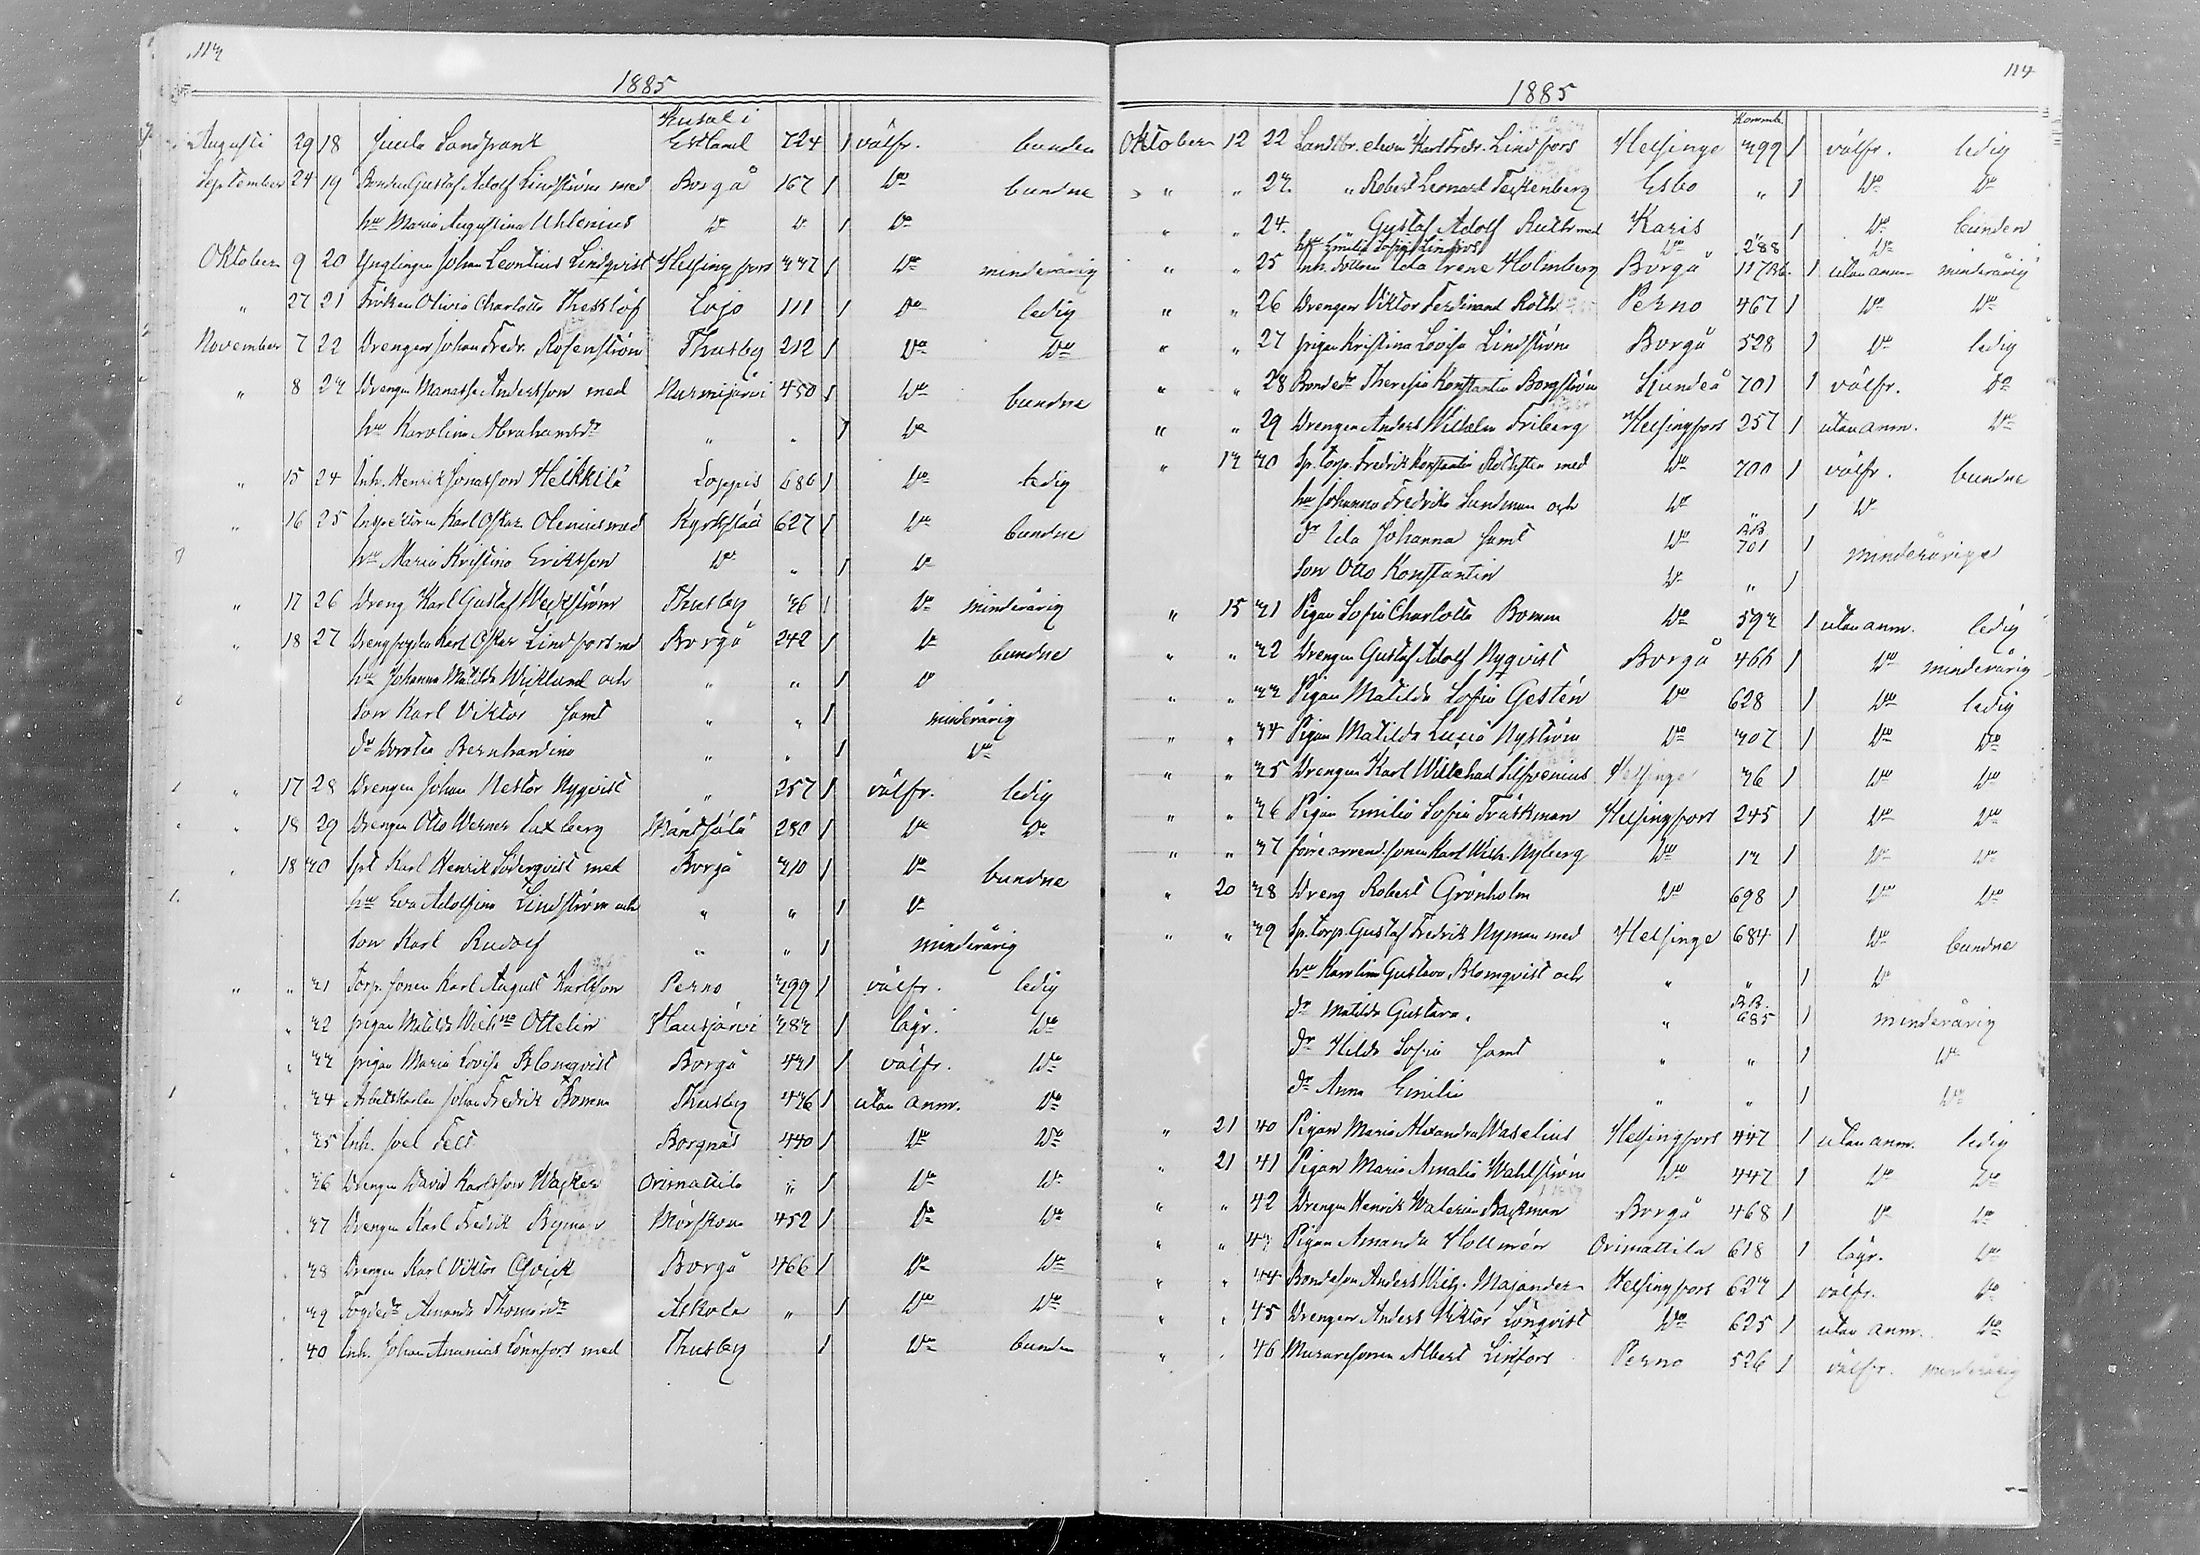 113
1885
Kusal i
Augusti 29 18 Juula Sandfrank Estland 724 1 välfr. bunden
September 24 19 Bonden Gustaf Adolf Lindström med Borgå 167 1 Do bundne
hu Maria Augustina Ahlenius Do Do 1 Do
Oktober 9 20 Ynglingen Johan Leontius Lindqvist Helsingfors 337 1 Do minderårig
" 27 21 Fröken Olivia Charlotta Thesslöf Lojo 111 1 Do ledig
November 7 22 Drengen Johan Fredr. Rosenström Thusby 212 1 Do Do
" 8 23 Drengen Manasse Andersson med Nurmijärvi 450 1 Do bundne
hu Karolina Abrahamsdr " " 1 Do
" 15 24 Inh. Henrik Jonasson Heikkilä Loppis 686 1 Do ledig
" 16 25 Karl Oskar Olenius med Kyrkslätt 627 1 Do bundne
hu Maria Kristina Eriksson Do " 1 Do
" 17 26 Dreng Karl Gustaf Weckström Thusby 36 1 Do minderårig
" 18 27 Karl Oskar Lindfors med Borgå 242 1 Do bundne
hu Johanna Matilda Wiklund och " " 1 Do
son Karl Viktor samt " " 1 minderårig
dr Dorotea Bernhardina " " 1 Do
" 17 28 Drengen Johan Nestor Nyqvist " 257 1 välfr. ledig
" 18 29 Drengen Otto Werner Laxberg Mäntsälä 280 1 Do Do
" 18 30 Karl Henrik Söderqvist med Borgå 310 1 Do bundne
hu Eva Adolfina Lindström och " " 1 Do
son Karl Rudolf " " 1 minderårig
" " 31 Torp. sonen Karl August Karlsson Perno 399 1 välfr. ledig
" 32 pigan Matilda Wilhna Ottelin Hausjärvi 383 1 lägr. Do
" 33 pigan Maria Lovisa Blomqvist Borgå 431 1 välfr. Do
" 34 Arbetskarlen Johan Fredrik Boman Thusby 436 1 utan anm. Do
" 35 Inh. Joel Felt Borgnäs 440 1 Do Do
" 36 Drengen David Karlsson Wacker Orimattila " 1 Do Do
" 37 Drengen Karl Fredrik Byman Mörskom 452 1 Do Do
" 38 Drengen Karl Viktor Qvick Borgå 466 1 Do Do
" 39 Amanda Thomasdr Askola " 1 Do Do
" 40 Inh. Johan Ananias Lönnfors med Thusby 1 Do bunden
114
1885
Oktober 12 22 Karl Fredr. Lindfors Helsinge 399 1 välfr. ledig
" " 23. " Robert Leonard Teckenberg Esbo " 1 Do Do
" " 24. " Gustaf Adolf Ruth med Karis " 1 Do bunden
hu Emilia Sofia Lindroos Do 288 Do
" " 25 Inh. dottren Ida Irene Holmberg Borgå 1 utan anm. minderårig
" " 26 Drengen Viktor Ferdinand Roth Perno 467 1 Do Do
" " 27 pigan Kristina Lovisa Lindström Borgå 528 1 Do ledig
" " 28 Bondedr Theresia Konstantia Borgström Sjundeå 701 1 välfr. Do
" " 29 Drengen Anders Wilhelm Friberg Helsingfors 257 1 utan anm. Do
" 13 30 Sp. torp. Fredrik Konstantin med Do 700 1 välfr. bundne
hu Johanna Fredrika Sundman och Do " 1 Do
dr Ida Johanna samt Do R.B. 701 1 minderåriga
son Otto Konstantin Do " 1
" 15 31 Pigan Sofia Charlotta Boman Do 593 1 utan anm. ledig
" " 32 Drengen Gustaf Adolf Nyqvist Borgå 466 1 Do minderårig
" " 33 Pigan Matilda Sofia Gestén Do 628 1 Do ledig
" " 34 Pigan Matilda Lucia Nyström Do 307 1 Do Do
" " 35 Drengen Karl Willehad Silfvenius Helsinge 36 1 Do Do
" " 36 Pigan Emilia Sofia Träskman Helsingfors 245 1 Do Do
" " 37 förre arrend. sonen Karl Wilh. Nyberg Do 13 1 Do Do
" 20 38 Dreng Robert Grönholm Do 698 1 Do Do
" " 39 Sp. torp. Gustaf Fredrik Nyman med Helsinge 684 1 Do bundne
hu Karolina Gustava Blomqvist och " " 1 Do
dr Matilda Gustava. " R.B. 685 1 minderårig
dr Hilda Sofia samt " " 1 Do
dr Anna Emilia " " 1 Do
" 21 40 Pigan Maria Alexandra Waselius Helsingfors 447 1 utan anm. ledig
" 21 41 Pigan Maria Amalia Wahlström Do 447 1 Do Do
" " 42 Drengen Henrik Walerian Backman Borgå 468 1 Do Do
" " 43 Pigan Amanda Hollmén Orimattila 618 1 lägr. Do
" " 44 Bondeson Anders Wilh. Majander Helsingfors 623 1 välfr. Do
" " 45 Drengen Anders Viktor Lönqvist Do 625 1 utan anm. Do
" " 46 Muraresonen Albert Linfors Perno 526 1 välfr. minderårig